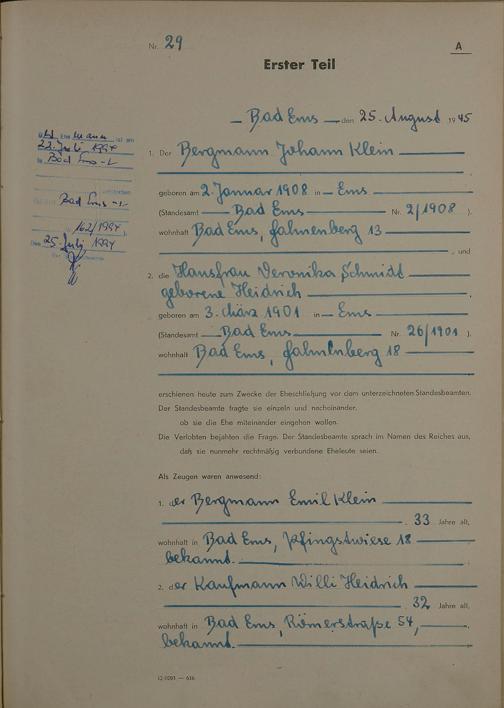 Nr. 29
A
Erster Teil
Bad Ems, den 25. August 1945
Ehemann ist am
23. Juli 1994
in Bad Ems
Bad Ems
162/1994
Den 25. July 1994
1. Der Bergmann Johann Klein
geboren am 2. Januar 1908 in Ems
(Standesamt Bad Ems Nr. 2/1908 ).
wohnhaft Bad Ems, Fahnenberg 13
, und
2. die Hausfrau Veronika Schmidt
geborene Heidrich
geboren am 3. März 1901 in Ems
(Standesamt Bad Ems Nr. 26/1901 ).
wohnhaft Bad Ems, Fahnenberg 18
erschienen heute zum Zwecke der Eheschließung vor dem unterzeichneten Standesbeamten.
Der Standesbeamte fragte sie einzeln und nacheinander,
ob sie die Ehe miteinander eingehen wollen.
Die Verlobten bejahten die Frage. Der Standesbeamte sprach im Namen des Reiches aus,
daß sie nunmehr rechtmäßig verbundene Eheleute seien.
Als Zeugen waren anwesend:
1. der Bergmann Emil Klein
, 33 Jahre alt,
wohnhaft in Bad Ems, Pfingstwiese 18
bekannt.
2. der Kaufmann Willi Heidrich
, 32 Jahre alt,
wohnhaft in Bad Ems, Römerstraße 54,
bekannt.